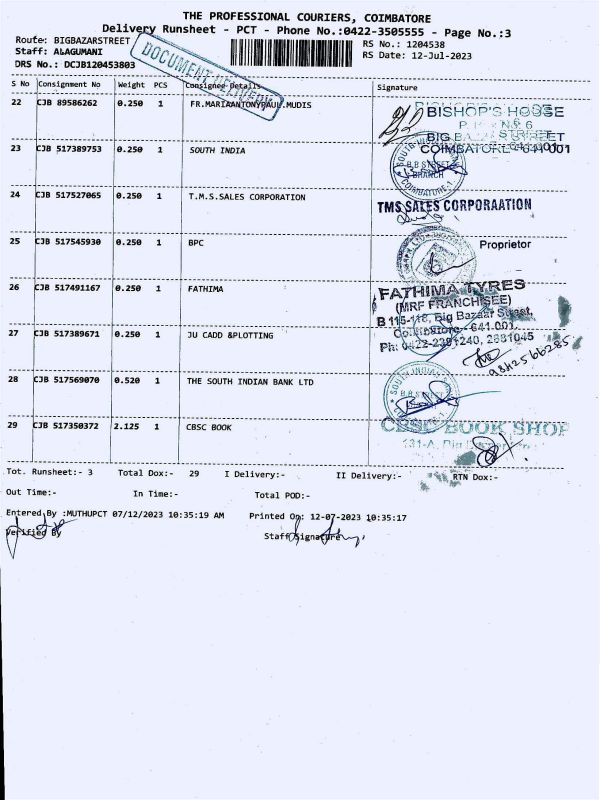 THE PROFESSIONAL COURIERS, COIMBATORE
Delivery Runsheet - PCT - Phone No.:0422-3505555 - Page No.:3
Route: BIGBAZARSTREET
Staff: ALAGUMANI
DRS No.: DCJB120453803
RS No.: 1204538
RS Date: 12-Jul-2023
DOCUMENT DELIVERY
S No Consignment No Weight PCS Consignee Details Signature
22 CJB 89586262 0.250 1 FR.MARIAANTONYPAUL.MUDIS
BISHOP'S HOUSE
BIG BAZAAR STREET
COIMBATORE - 641 001
23 CJB 517389753 0.250 1 SOUTH INDIA
B.B STREET
BRANCH
COIMBATORE-1
24 CJB 517527065 0.250 1 T.M.S.SALES CORPORATION
TMS SALES CORPORAATION
25 CJB 517545930 0.250 1 BPC
Proprietor
26 CJB 517491167 0.250 1 FATHIMA
FATHIMA TYRES
(MRF FRANCHISEE)
B 115-116, Big Bazaar Street,
Coimbatore - 641 001.
Ph: 0422-2391240, 2681045
27 CJB 517389671 0.250 1 JU CADD &PLOTTING
9842566285
28 CJB 517569070 0.520 1 THE SOUTH INDIAN BANK LTD
SOUTH INDIAN
29 CJB 517350372 2.125 1 CBSC BOOK
CBSC BOOK SHOP
131-A, Big
Tot. Runsheet:- 3 Total Dox:- 29 I Delivery:- II Delivery:- RTN Dox:-
Out Time:- In Time:- Total POD:-
Entered By :MUTHUPCT 07/12/2023 10:35:19 AM Printed On: 12-07-2023 10:35:17
Verified By Staff Signature